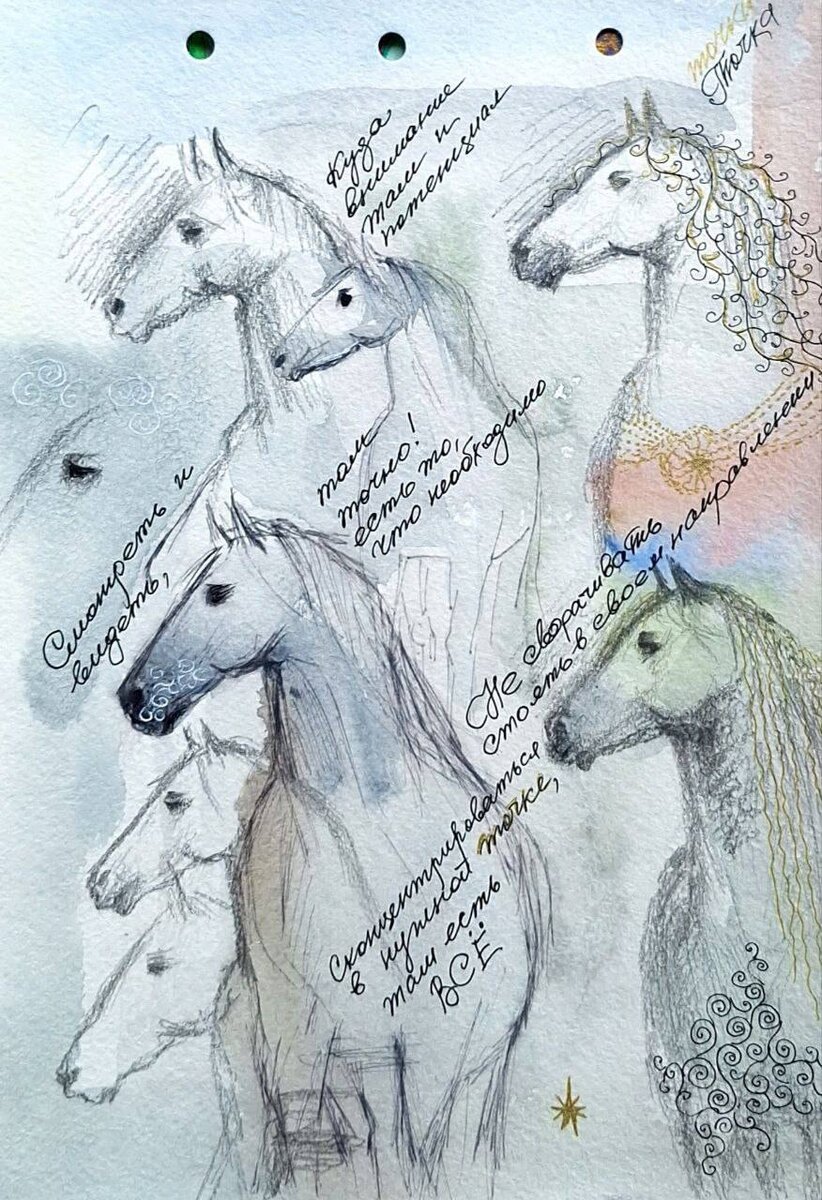 точка
Точка
Куда
внимание
там и
потенциал
там
точно!
есть то,
что необходимо
Смотреть и
видеть,
Не сворачивать
стоять в своем направлении
Сконцентрироваться
в нужной точке,
там есть
ВСЁ